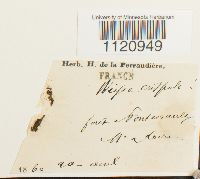 University of Minnesota Herbarium
1120949
Herb. H. de la Perraudière.
FRANCE
Weissia crispula
forêt
M. Loire
1862 20 avril